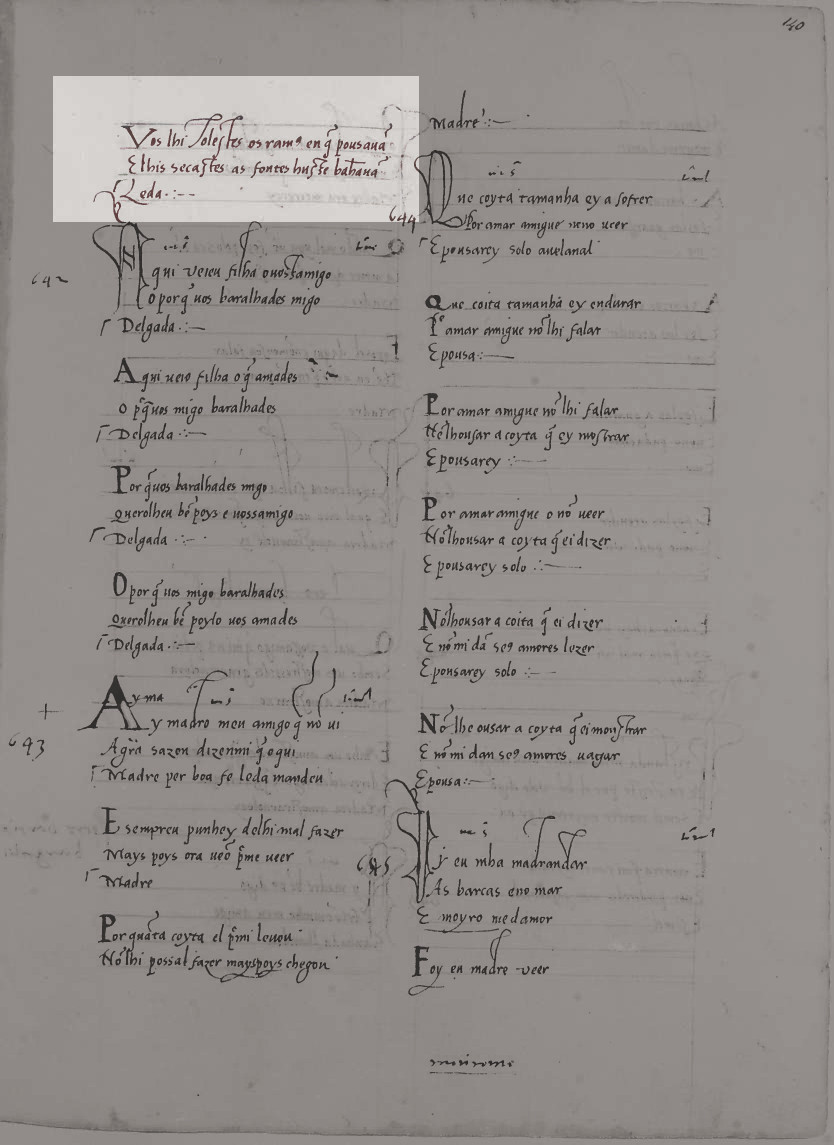 Vos lhi Tolestes os ram⁹ en q̃ pousauã
Elhis secastes as fontes husse bahauã
Leda
140
Madre
644
Que coyta tamanha ey a sofrer
Por amar amigue nono ueer
E pousarey solo auelanal
Que coita tamanhã ey endurar
Pᵒ amar amigue nõ lhi falar
E pousa
Por amar amigue nõ lhi falar
Nẽ lhousar a coyta q̃ ey mostrar
E pousarey
Por amar amigue o nõ ueer
Nẽ lhousar a coyta q̃ ei dizer
E pousarey solo
Nõ lhousar a coita q̃ ei dizer
E nõ mi dã se⁹ amores lezer
E pousarey solo
Nõ lhe ousar a coyta q̃ ei monstrar
E nõ mi dan se⁹ amores uagar
E pousa
645
Vy eu mha madrandar
As barcas eno mar
E moyro me damor
Foy eu madre ueer
642
Aqui ueieu filha o uossamigo
O por q̃ uos baralhades migo
Delgada
Aqui ueio filha o q̃ amades
O p̃ q̃ uos migo baralhades
Delgada
Por q̃ uos baralhades migo
Querolheu bẽ poys e uossamigo
Delgada
O por q̃ uos migo baralhades
Querolheu bẽ poylo uos amades
Delgada
643
Ay ma
Ay madro meu amigo q̃ nõ ui
A grã sazon dizenmi q̃ e qui
Madre per boa fe leda mandeu
E sempreu punhey delhi mal fazer
Mays poys ora ueõ p̃me ueer
Madre
Por quãta coyta el p̃mi leuou
Nõ lhi possal fazer mays poys chegou